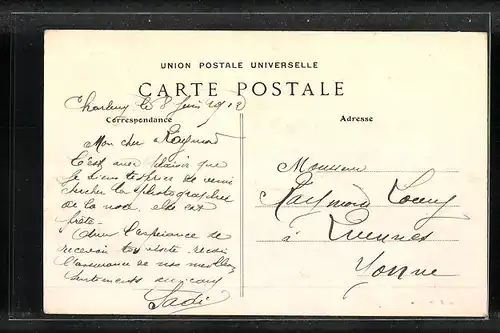 UNION POSTALE UNIVERSELLE
CARTE POSTALE
Charbuy le 8 Juin 1912
Correspondance
Adresse
Mon cher Raymond
C'est avec plaisir que
je viens te de venir
chercher la photographie
de la noce, elle est
prête.
Dans l'espérance de
recevoir ta visite reçois
l'assurance de nos meilleurs
sentiments
Sadi
Monsieur
Raymond
à
Yonne